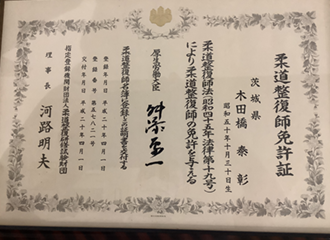 柔道整復師免許証
茨城県
木田橋 泰彰
昭和五十年十月三十日生
柔道整復師法(昭和四十五年法律第十九号)
により柔道整復師の免許を与える
厚生労働大臣 舛添要一
柔道整復師名簿に登録し此の証書を交付する
登録年月日 平成二十年四月一日
登録番号
交付年月日 平成二十年四月一日
指定登録機関財団法人柔道整復研修試験財団
理事長 河路明夫